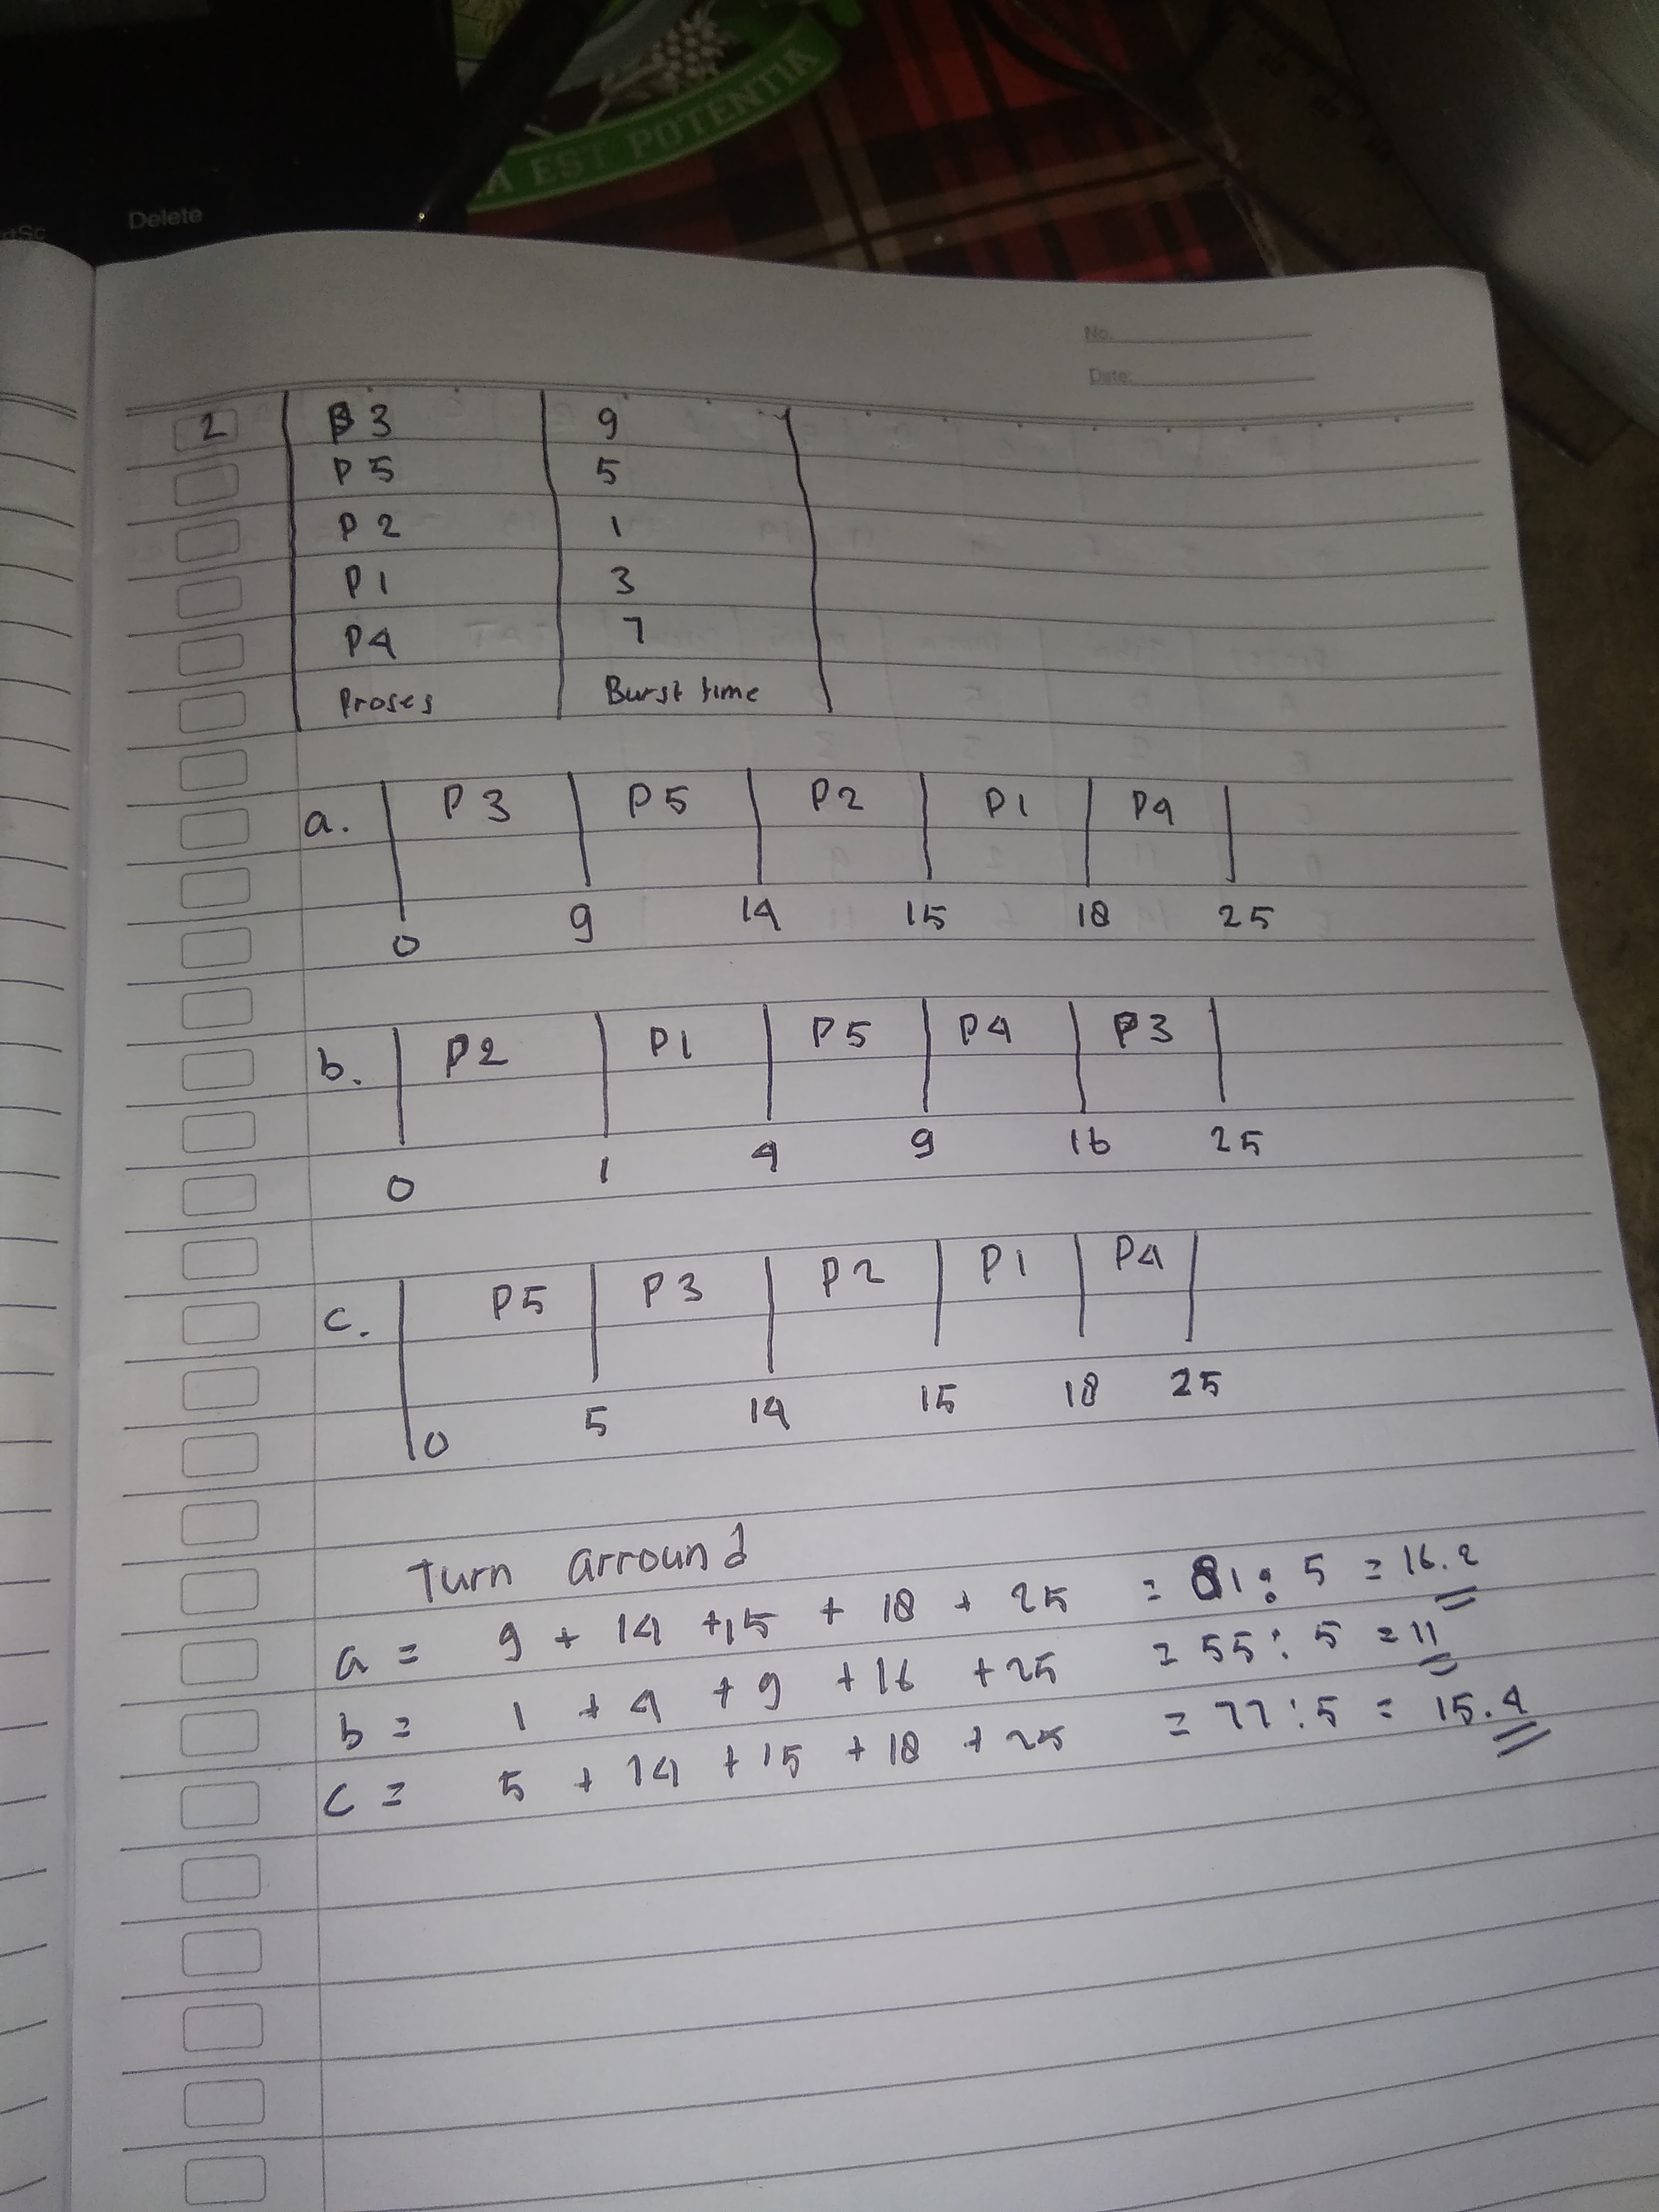 A EST POTENTIA
Delete
No.
Date:
2 P3 9
P5 5
P2 1
P1 3
P4 7
Proses Burst time
a. P3 P5 P2 P1 P4
0 9 14 15 18 25
b. P2 P1 P5 P4 P3
0 1 4 9 16 25
c. P5 P3 P2 P1 P4
0 5 14 15 18 25
Turn arround
a = 9 + 14 + 15 + 18 + 25 = 81 : 5 = 16.2
b = 1 + 4 + 9 + 16 + 25 = 55 : 5 = 11
c = 5 + 14 + 15 + 18 + 25 = 77 : 5 = 15.4